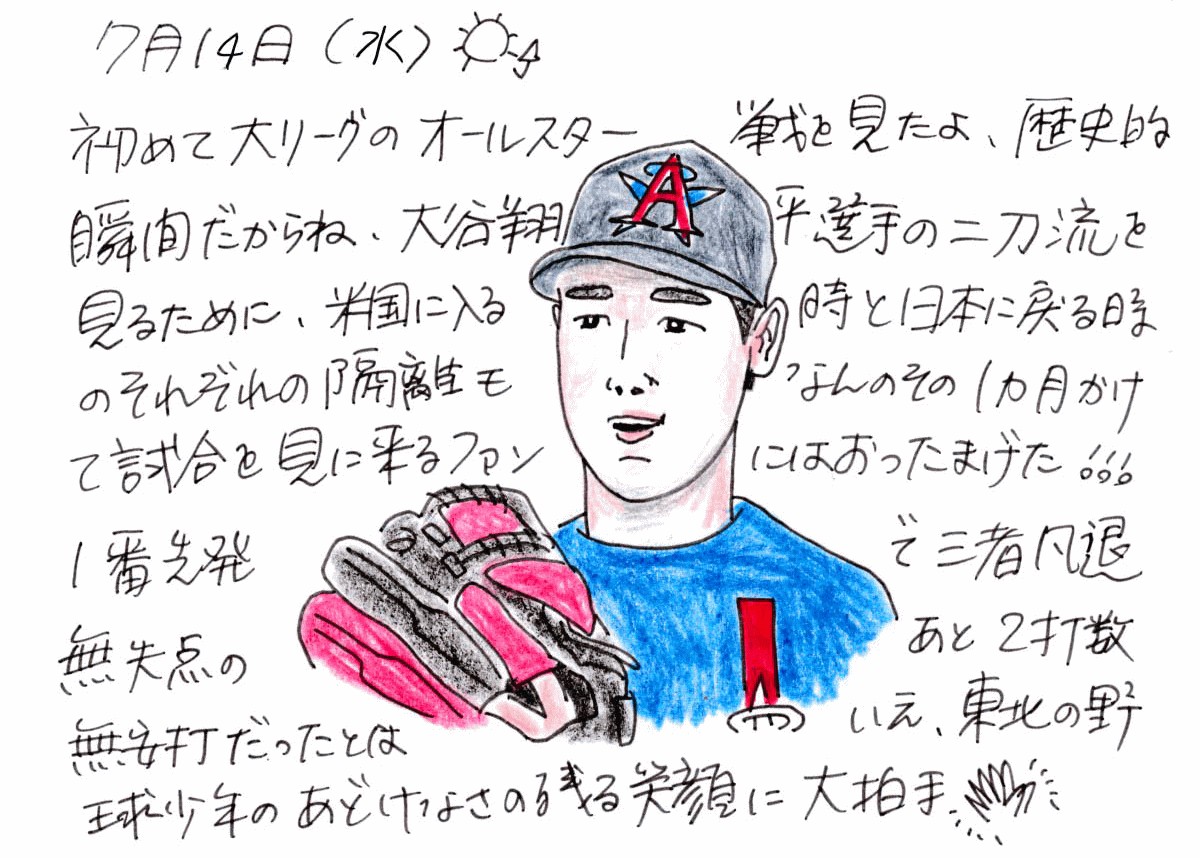 7月14日（水）
初めて大リーグのオールスター戦を見たよ、歴史的
瞬間だからね、大谷翔平選手の二刀流を
見るために、米国に入る時と日本に戻る時
のそれぞれの隔離もなんのその1カ月かけ
て試合を見に来るファンにはおったまげた!!!
1番先発で三者凡退
無失点のあと2打数
無安打だったとはいえ、東北の野
球少年のあどけなさの残る笑顔に大拍手
A